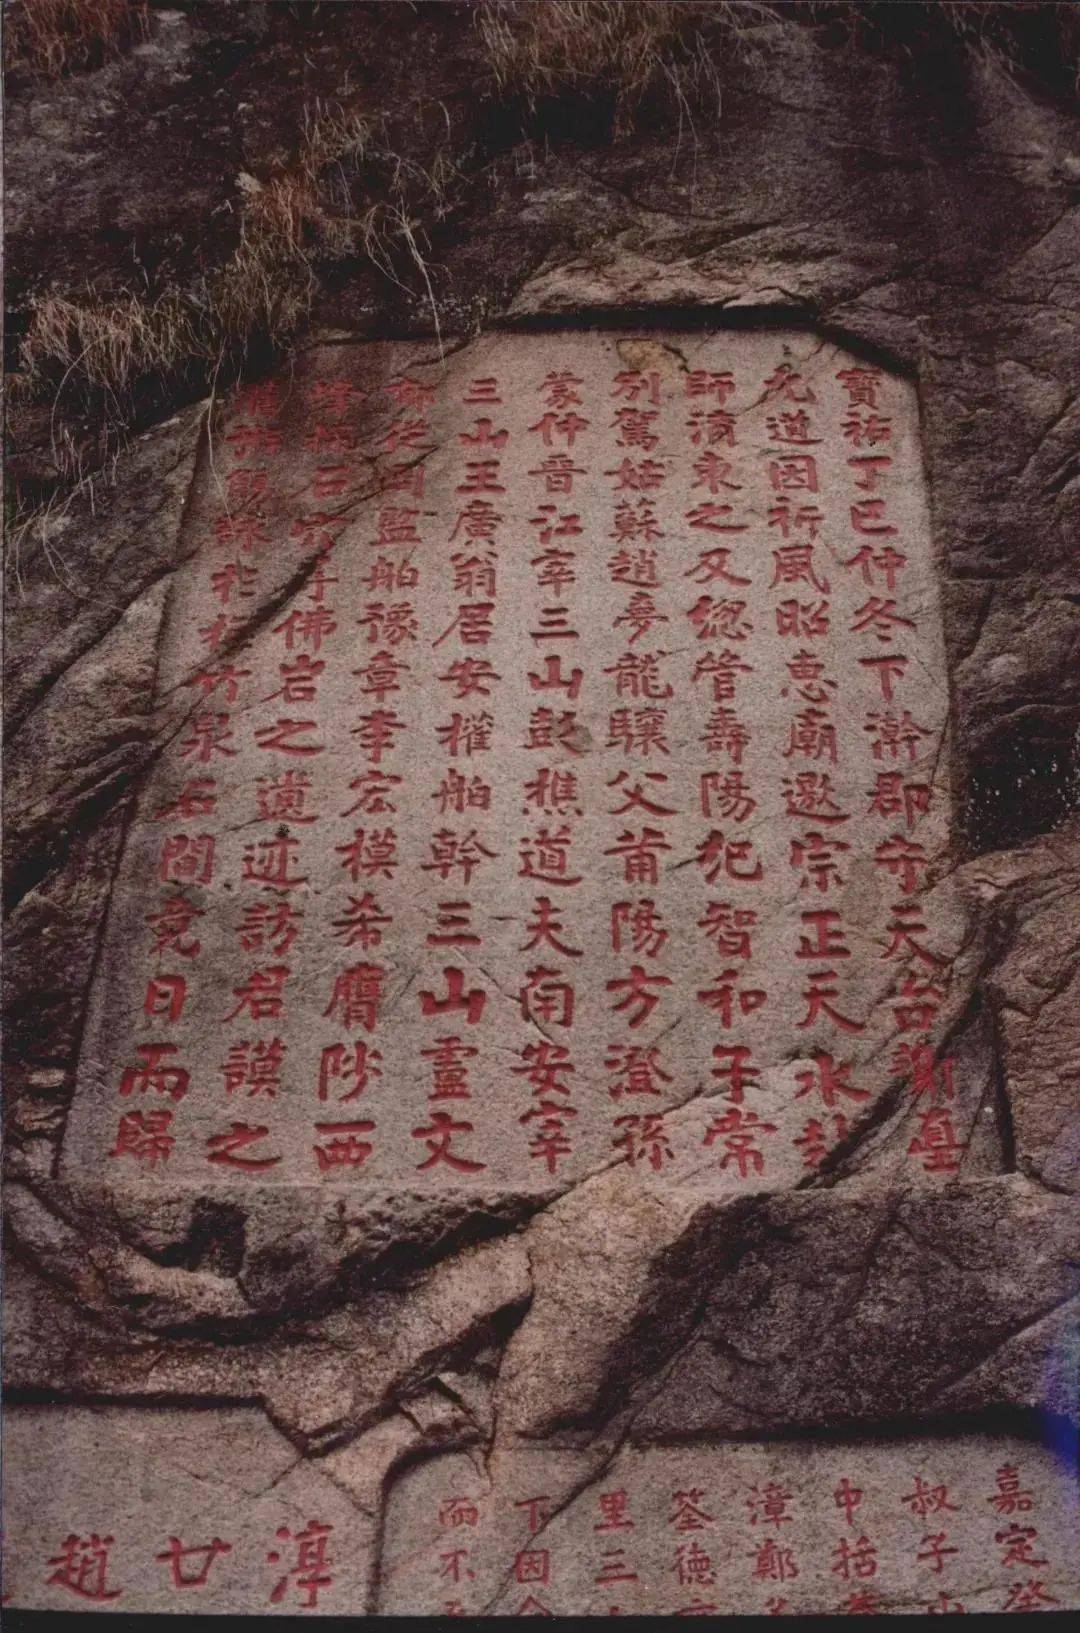 寶祐丁巳仲冬下澣郡守天台謝
允道因祈風昭惠廟邀宗正天水趙
師清東之又緫管壽陽紀智和子常
別駕姑蘇趙夢龍驤父莆陽方澄孫
蒙仲晉江宰三山彭樵道夫南安宰
三山王廣翁居安權舶幹三山靈文
郁從周監舶豫章李宏模希膺陟西
峰探石穴尋佛岩之遺迹訪君謨之
於松竹泉石間竟日而歸
嘉定
叔子
中括
漳鄭
筌德
里三
下因
而不
淳
廿
趙